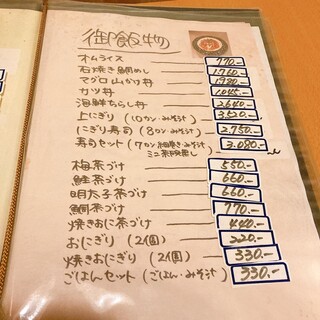 御飯物
オムライス 770.-
石焼き鯛めし 1,760.-
マグロ山かけ丼 1,980.-
カツ丼 1,045.-
海鮮ちらし丼 2,640.-
上にぎり（10カン・みそ汁） 3,520.-
にぎり寿司（8カン・みそ汁） 2,750.-
寿司セット（7カン・細巻き・みそ汁 3,080.-
ミニ茶碗蒸し
梅茶づけ 550.-
鮭茶づけ 660.-
明太子茶づけ 660.-
鯛茶づけ 770.-
焼きおに茶づけ 440.-
おにぎり（2個） 220.-
焼きおにぎり（2個） 330.-
ごはんセット（ごはん・みそ汁） 330.-